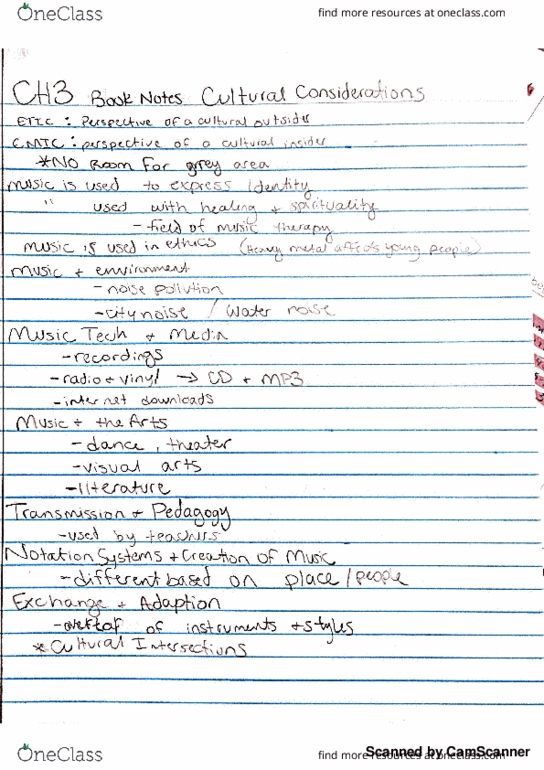 OneClass
find more resources at oneclass.com
CH3 Book Notes Cultural Considerations
ETIC : Perspective of a cultural outsider
EMIC : perspective of a cultural insider
*NO Room For grey area
Music is used to express Identity
" used with healing + spirituality
- field of music therapy
Music is used in ethics (Heavy metal affects young people)
Music + environment
- noise pollution
- city noise / water noise
Music Tech + Media
- recordings
- radio + vinyl → CD + MP3
- internet downloads
Music + the Arts
- dance, theater
- visual arts
- literature
Transmission + Pedagogy
- used by teachers
Notation Systems + Creation of Music
- different based on place / people
Exchange + Adaption
- of instruments + styles
* Cultural Intersections
OneClass
find more resources at oneclass.com
Scanned by CamScanner